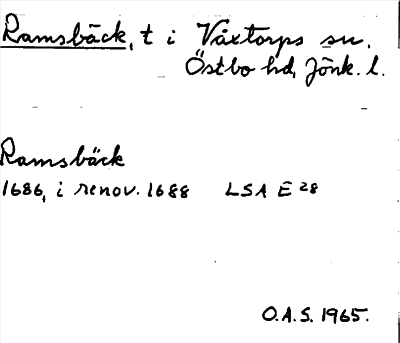 Ramsbäck, t i Våxtorps sn.
Östbo hd, Jönk. l.
Ramsbäck
1686, i renov. 1688 LSA E 28
O.A.S. 1965.